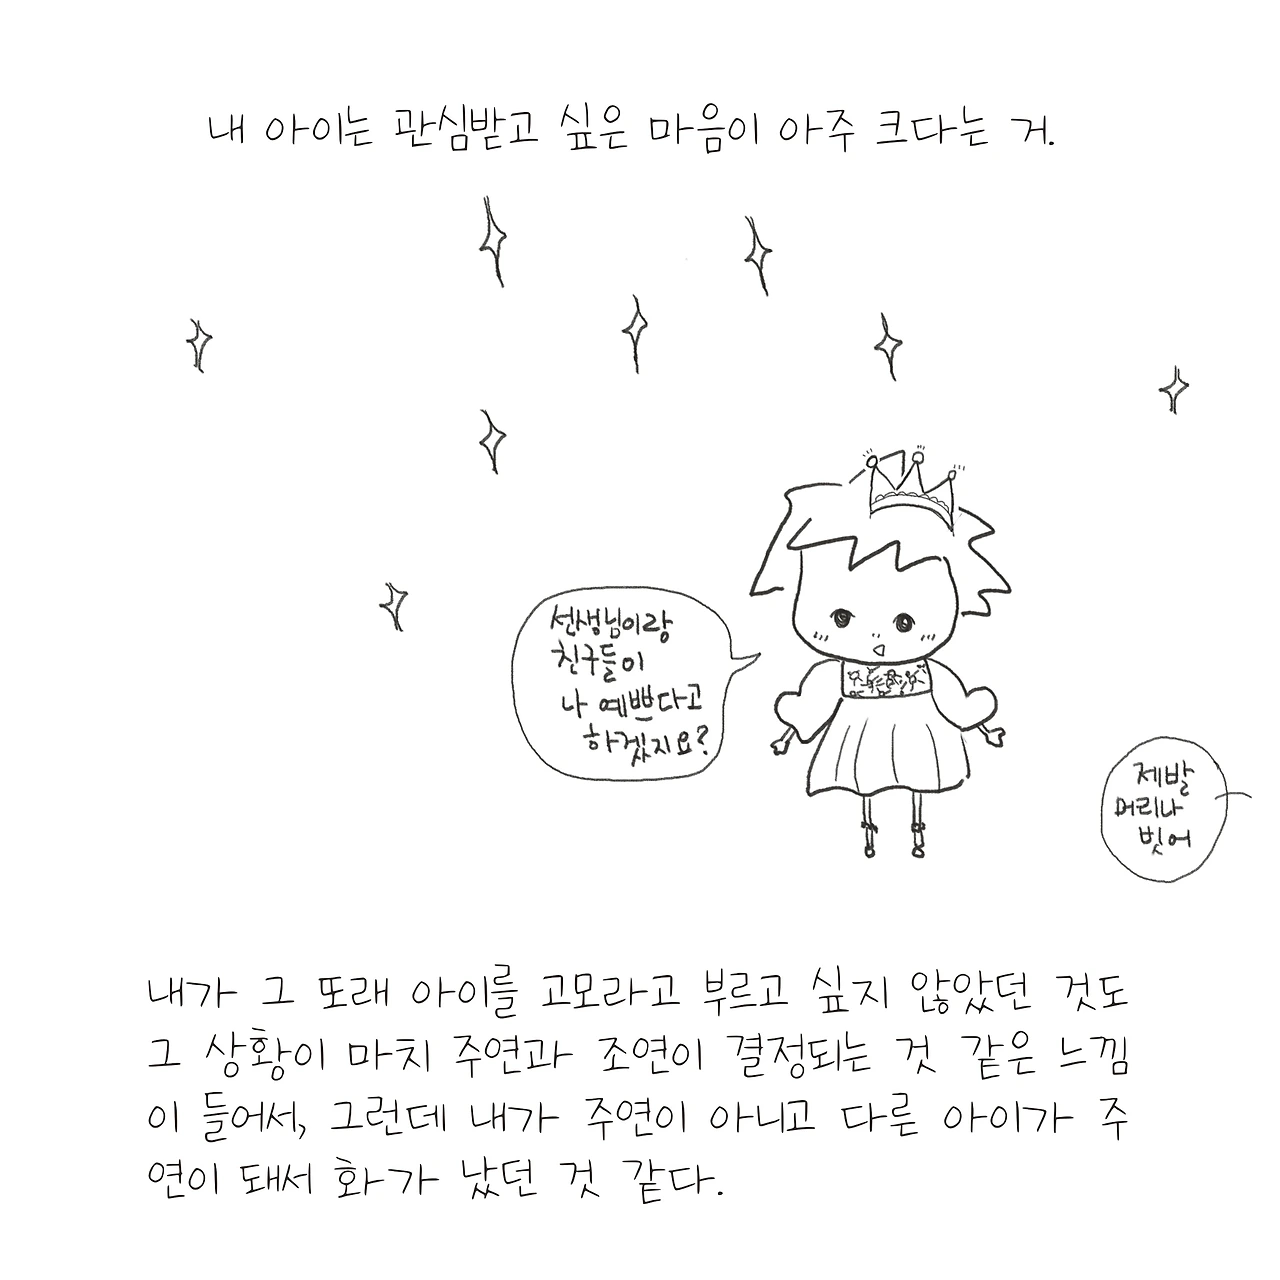 내 아이는 관심받고 싶은 마음이 아주 크다는 거.
선생님이랑
친구들이
나 예쁘다고
하겠지요?
제발
머리나
빗어
내가 그 또래 아이를 고모라고 부르고 싶지 않았던 것도
그 상황이 마치 주연과 조연이 결정되는 것 같은 느낌
이 들어서, 그런데 내가 주연이 아니고 다른 아이가 주
연이 돼서 화가 났던 것 같다.